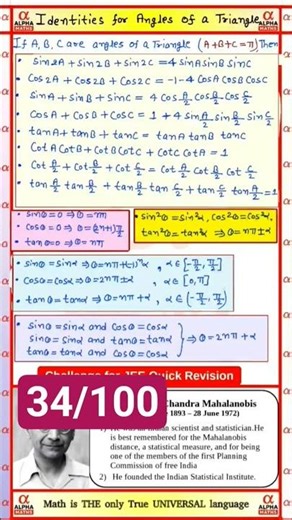 α ALPHA MATHS Identities for Angles of a Triangle α ALPHA MATHS
If A, B, C are angles of a Triangle (A+B+C=π) Then
• sin2A + sin2B + sin2C = 4 sinA sinB sinC
• cos2A + cos2B + cos2C = -1-4 cosA cosB cosC
• sinA + sinB + sinC = 4 cos A/2 cos B/2 cos C/2
• cosA + cosB + cosC = 1 + 4 sin A/2 sin B/2 sin C/2
• tanA + tanB + tanC = tanA tanB tanC
• cotA cotB + cotB cotC + cotC cotA = 1
• cot A/2 + cot B/2 + cot C/2 = cot A/2 cot B/2 cot C/2
• tan A/2 tan B/2 + tan B/2 tan C/2 + tan C/2 tan A/2 = 1
• sinθ=0 ⇒ θ=nπ
cosθ=0 ⇒ θ=(2n+1)π/2
tanθ=0 ⇒ θ=nπ
• sin²θ=sin²α, cos²θ=cos²α,
tan²θ=tan²α ⇒ θ=nπ±α
• sinθ=sinα ⇒ θ=nπ+(-1)ⁿα, α∈[-π/2, π/2]
cosθ=cosα ⇒ θ=2nπ±α, α∈[0,π]
• tanθ=tanα ⇒ θ=nπ+α, α∈(-π/2, π/2)
• sinθ=sinα and cosθ=cosα
sinθ=sinα and tanθ=tanα
tanθ=tanα and cosθ=cosα
⇒ θ=2nπ+α
Challenge for JEE Quick Revision
34/100
Chandra Mahalanobis
1893 – 28 June 1972)
1) He was an Indian scientist and statistician.He
is best remembered for the Mahalanobis
distance, a statistical measure, and for being
one of the members of the first Planning
Commission of free India
2) He founded the Indian Statistical Institute.
α ALPHA MATHS Math is THE only True UNIVERSAL language α ALPHA MATHS